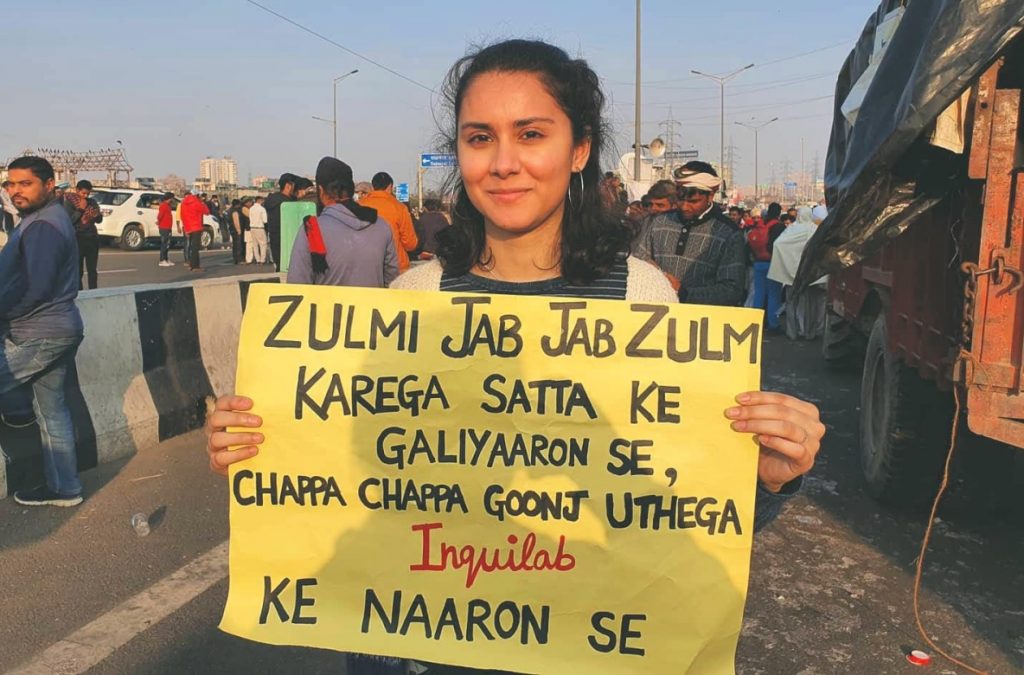 ZULMI JAB JAB ZULM
KAREGA SATTA KE
GALIYAARON SE,
CHAPPA CHAPPA GOONJ UTHEGA
Inquilab
KE NAARON SE